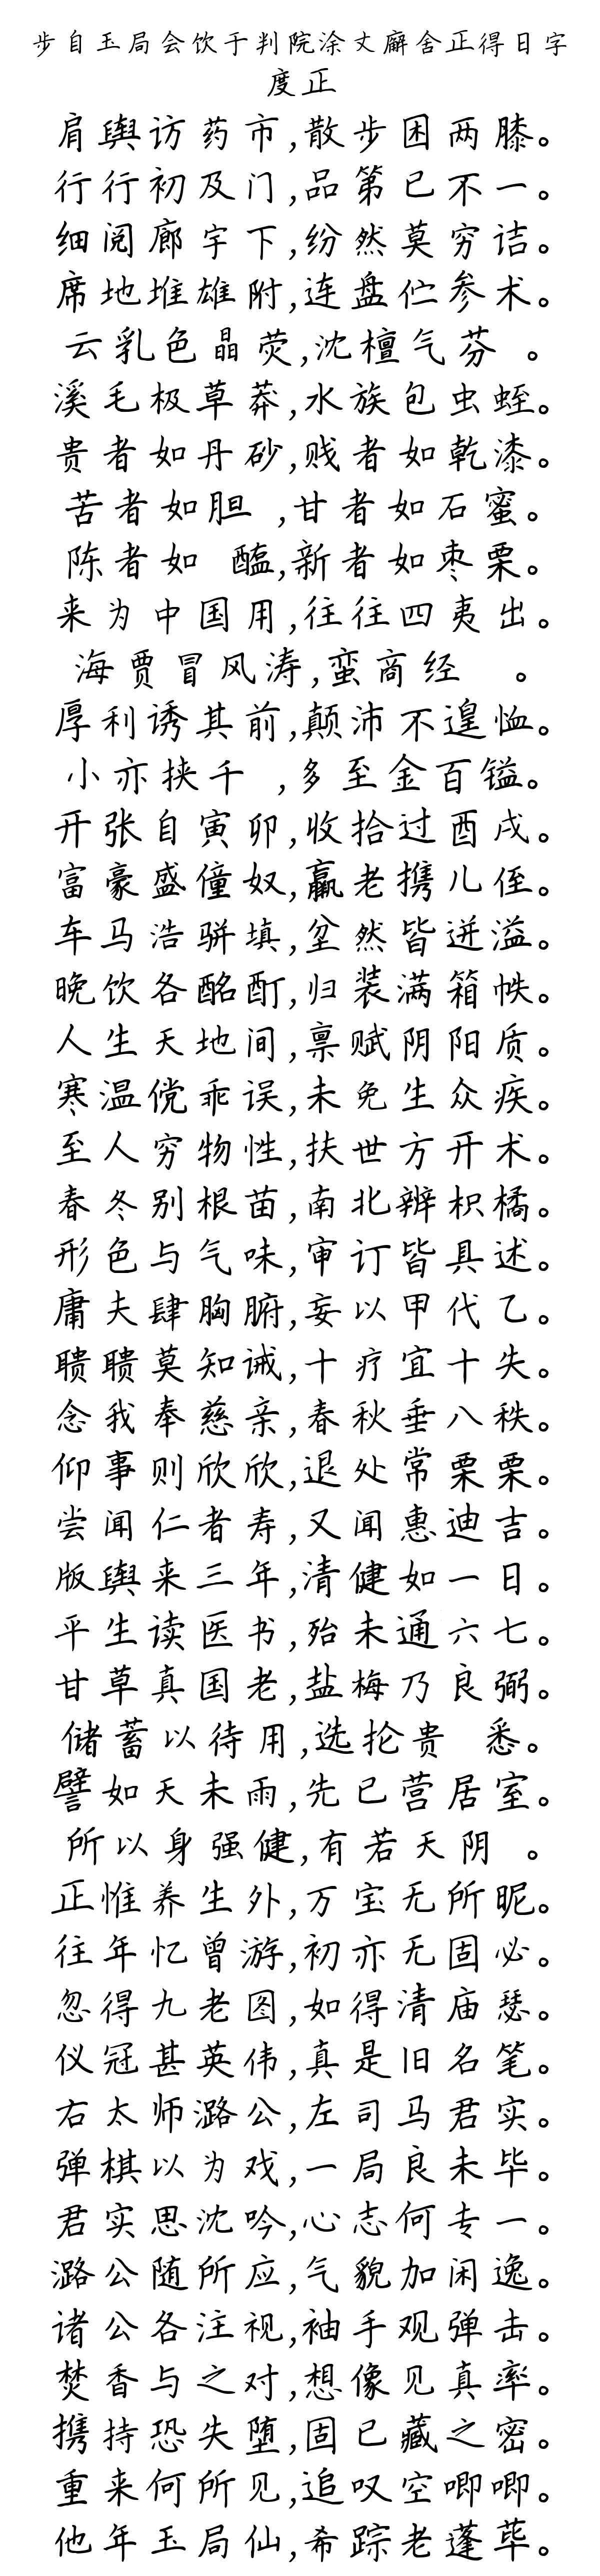 步自玉局会饮于判院涂丈廨舍正得日字
度正
肩舆访药市,散步困两膝。
行行初及门,品第已不一。
细阅廊宇下,纷然莫穷诘。
席地堆雄附,连盘伫参术。
云乳色晶荧,沈檀气芬 。
溪毛极草莽,水族包虫蛭。
贵者如丹砂,贱者如乾漆。
苦者如胆 ,甘者如石蜜。
陈者如 醢,新者如枣栗。
来为中国用,往往四夷出。
海贾冒风涛,蛮商经 。
厚利诱其前,颠沛不遑恤。
小亦挟千 ,多至金百镒。
开张自寅卯,收拾过酉戌。
富豪盛僮奴,羸老携儿侄。
车马浩骈填,坌然皆迸溢。
晚饮各酩酊,归装满箱帙。
人生天地间,禀赋阴阳质。
寒温傥乖误,未免生众疾。
至人穷物性,扶世方开术。
春冬别根苗,南北辨枳橘。
形色与气味,审订皆具述。
庸夫肆胸腑,妄以甲代乙。
聩聩莫知诫,十疗宜十失。
念我奉慈亲,春秋垂八秩。
仰事则欣欣,退处常栗栗。
尝闻仁者寿,又闻惠迪吉。
版舆来三年,清健如一日。
平生读医书,殆未通六七。
甘草真国老,盐梅乃良弼。
储蓄以待用,选抡贵 悉。
譬如天未雨,先已营居室。
所以身强健,有若天阴 。
正惟养生外,万宝无所昵。
往年忆曾游,初亦无固必。
忽得九老图,如得清庙瑟。
仪冠甚英伟,真是旧名笔。
右太师潞公,左司马君实。
弹棋以为戏,一局良未毕。
君实思沈吟,心志何专一。
潞公随所应,气貌加闲逸。
诸公各注视,袖手观弹击。
焚香与之对,想像见真率。
携持恐失堕,固已藏之密。
重来何所见,追叹空唧唧。
他年玉局仙,希踪老蓬荜。